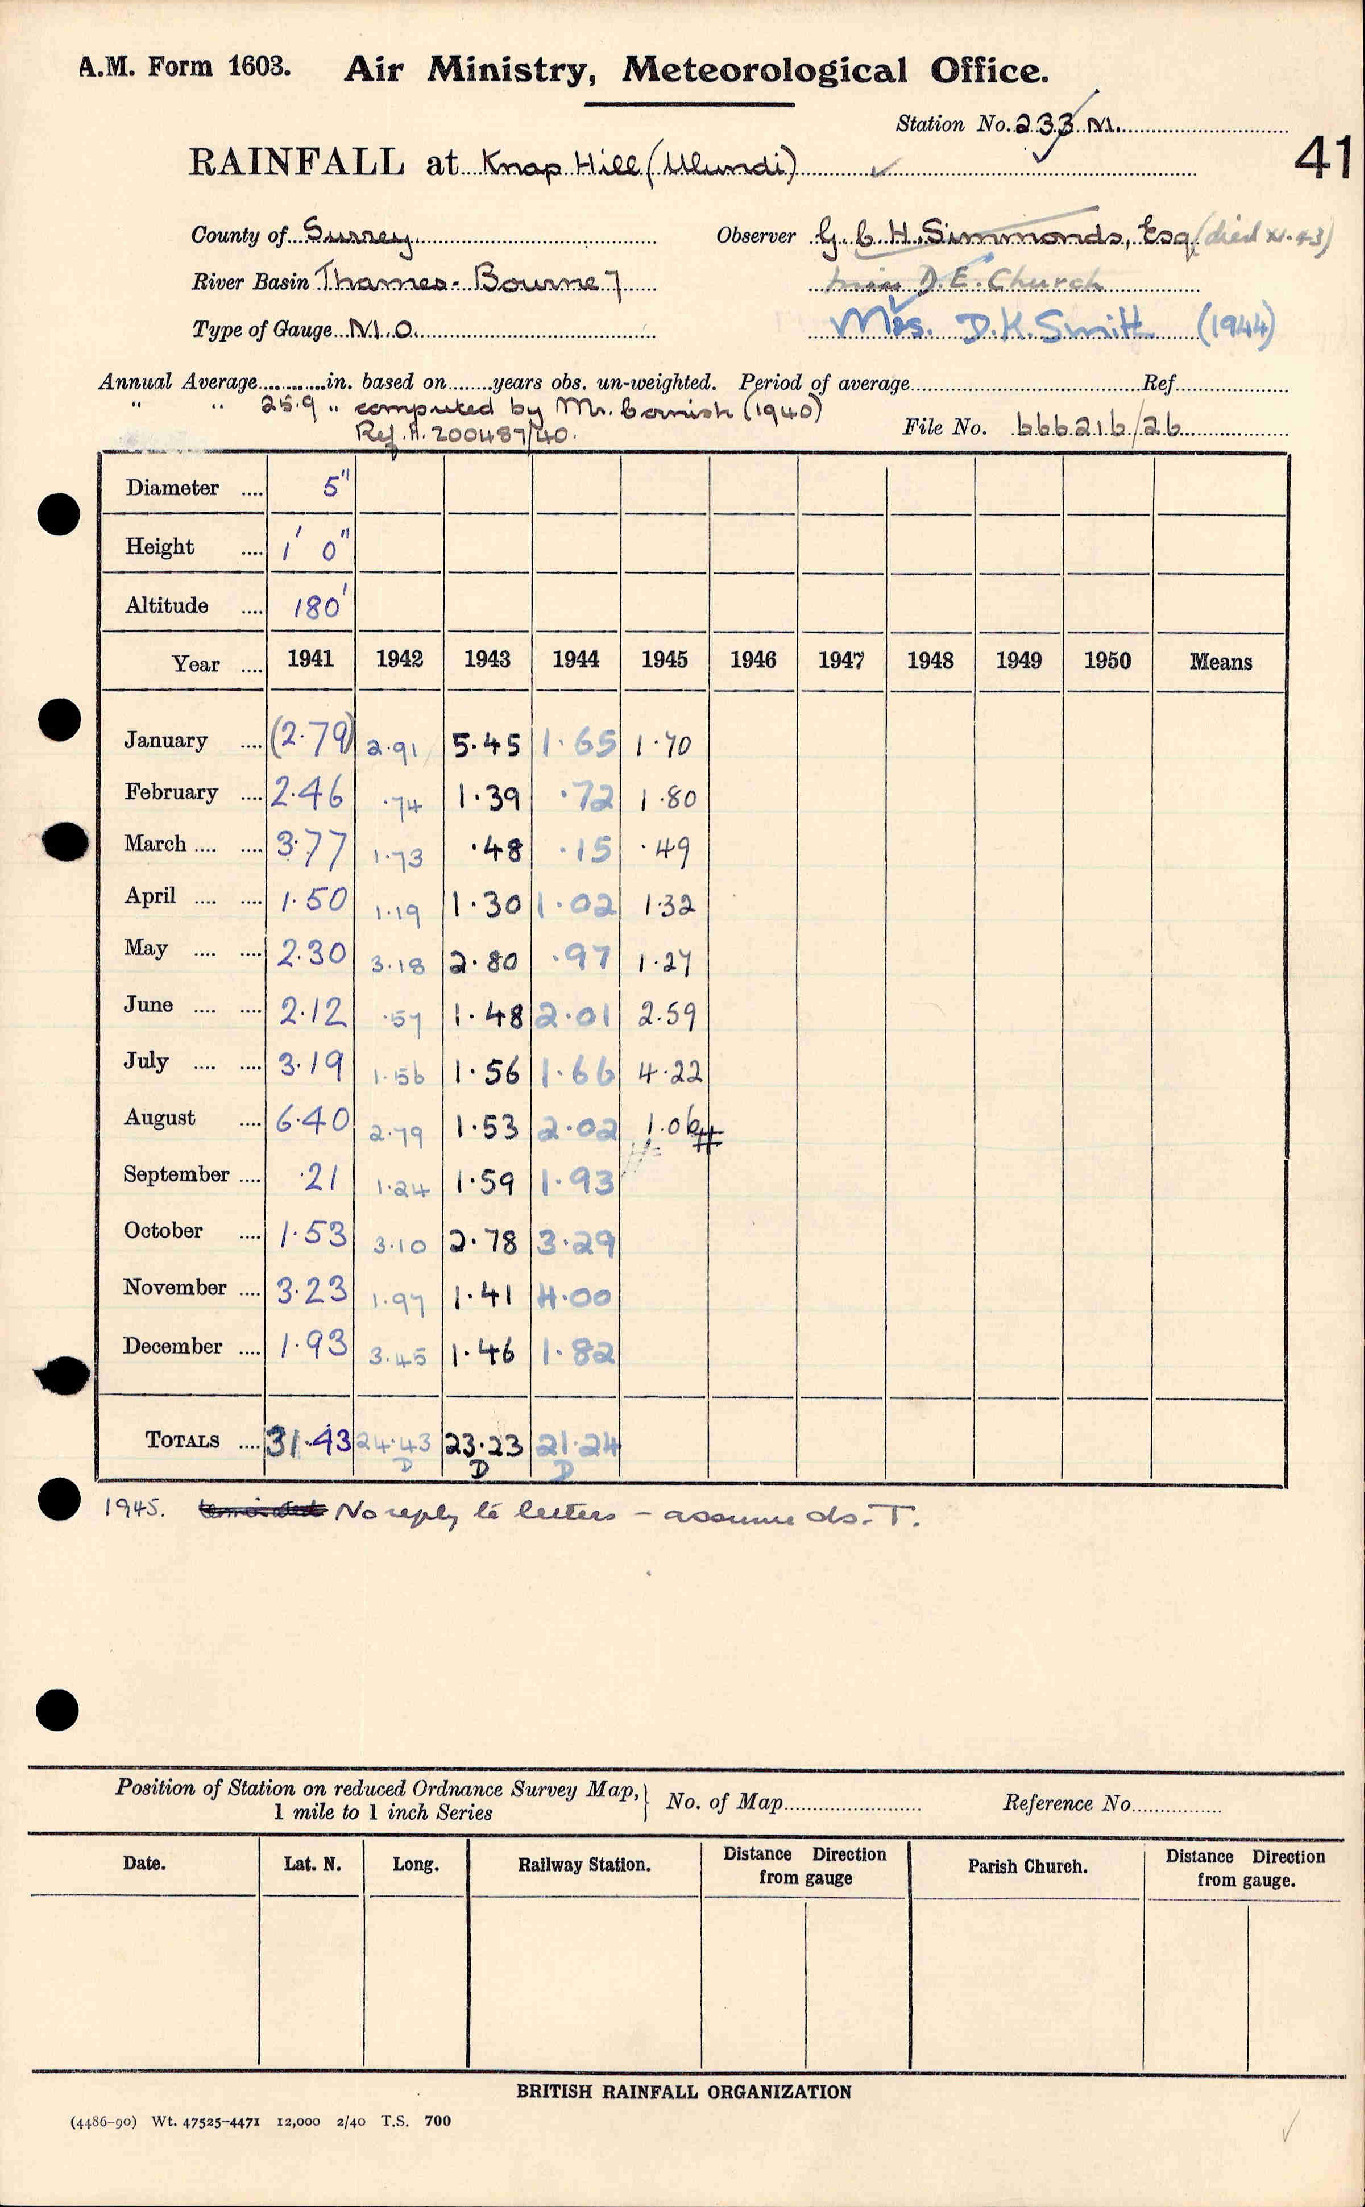 A.M. Form 1603. Air Ministry, Meteorological Office.
Station No. 233 M.
41
RAINFALL at Knap Hill (Ulundi)
County of Surrey Observer G. C. H. Simmonds, Esq (died XI.43)
River Basin Thames - Bourne 7 Miss D. E. Church
Type of Gauge M.O. Mrs. D. K. Smith (1944)
Annual Average............in. based on........years obs. un-weighted. Period of average Ref
" " 25.9 " computed by Mr. Cornish (1940)
Ref. A. 200487/40.
File No. 666216/26
Diameter .... 5"
Height .... 1' 0"
Altitude .... 180'
Year .... 1941 1942 1943 1944 1945 1946 1947 1948 1949 1950 Means
January .... (2.79) 2.91 5.45 1.65 1.70
February .... 2.46 .74 1.39 .72 1.80
March .... .... 3.77 1.73 .48 .15 .49
April .... .... 1.50 1.19 1.30 1.02 1.32
May .... .... 2.30 3.18 2.80 .97 1.27
June .... .... 2.12 .57 1.48 2.01 2.59
July .... .... 3.19 1.56 1.56 1.66 4.22
August .... 6.40 2.79 1.53 2.02 1.06 #
September .... .21 1.24 1.59 1.93
October .... 1.53 3.10 2.78 3.29
November .... 3.23 1.97 1.41 4.00
December .... 1.93 3.45 1.46 1.82
TOTALS .... 31.43 24.43 23.23 21.24
D D D
1945. No reply to letters - assume ds. T.
Position of Station on reduced Ordnance Survey Map, } No. of Map Reference No
1 mile to 1 inch Series
Date. Lat. N. Long. Railway Station. Distance from gauge Direction Parish Church. Distance Direction from gauge.
BRITISH RAINFALL ORGANIZATION
(4486-90) Wt. 47525-4471 12,000 2/40 T.S. 700